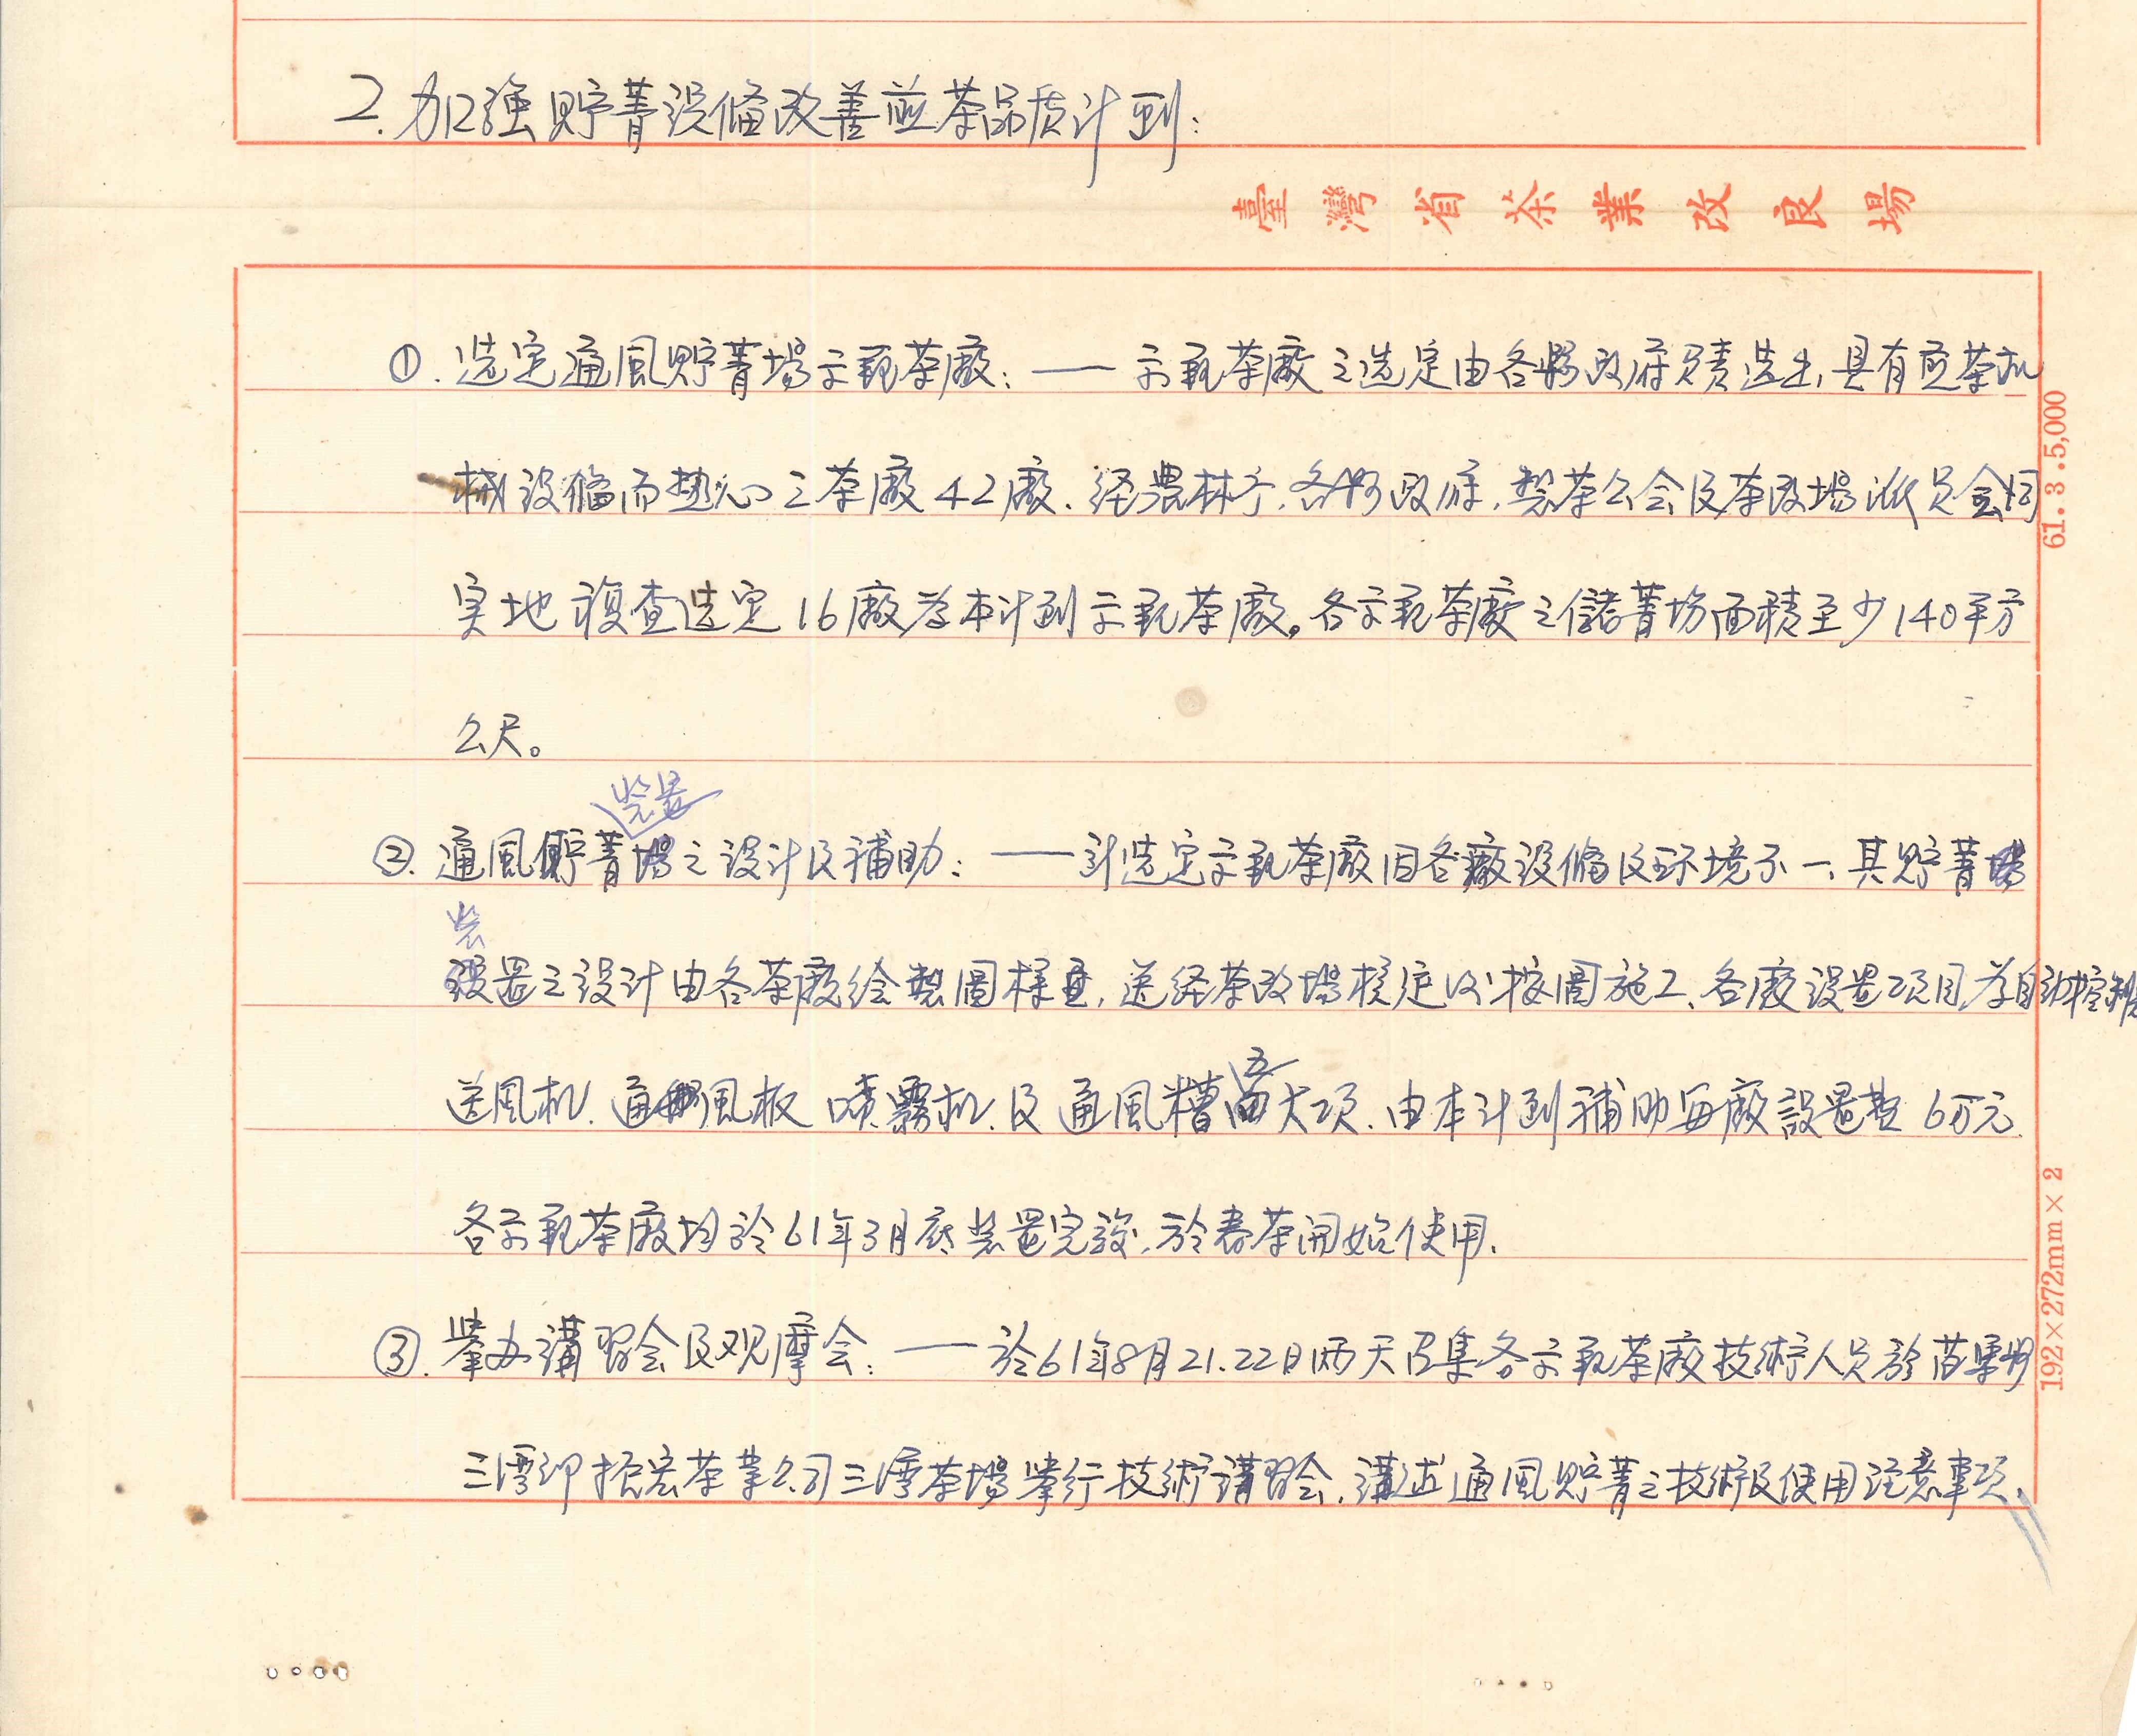 2. 加強貯菁設備改善煎茶品质计劃：
臺灣省茶業改良場
①. 选定通風貯菁場示範茶廠：—— 示範茶廠之选定由各縣政府負責选出，具有煎茶机
械設備而热心之茶廠42廠．经農林厅．各縣政府，製茶公会及茶改場派員会同
実地複查选定16廠為本计劃示範茶廠。各示範茶廠之儲菁場面積至少140平方
公尺。
裝置
②. 通風貯菁之设计及補助：—— 計选定示範茶廠因各廠設備及环境不一，其貯菁
裝
置之设计由各茶廠绘製圖樣，送经茶改場核定后按圖施工，各廠设置项目為自动控制
送風机．通風板 喷霧机．及通風槽五大项．由本计劃補助每廠設置費6万元
各示範茶廠均於61年3月底裝置完竣，於春茶開始使用．
③. 举办講習会及观摩会：—— 於61年8月21.22日两天召集各示範茶廠技術人員於苗栗縣
三湾鄉振宏茶業公司三湾茶場举行技術講習会，講述通風貯菁之技術及使用注意事项，
61.3.5,000
192×272mm×2